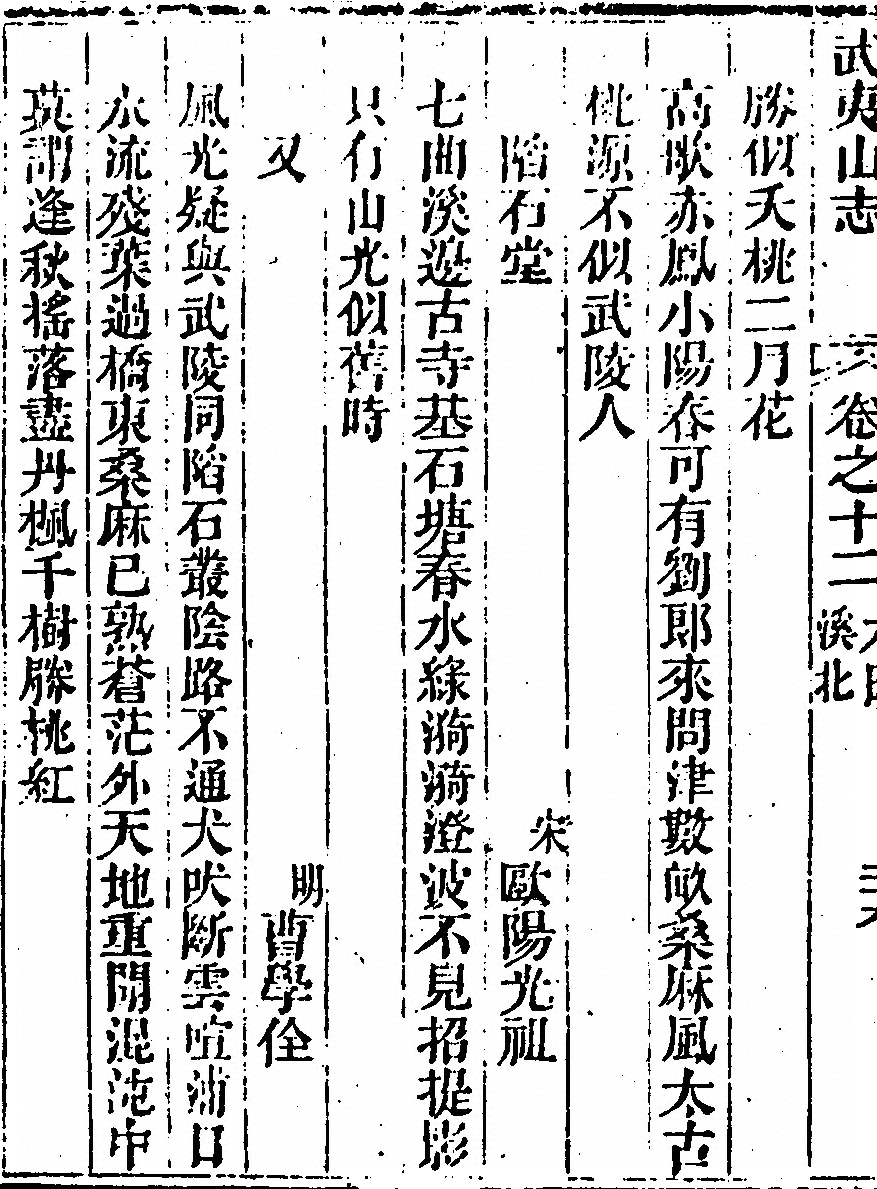 武夷山志 卷之十二 溪北
勝似夭桃二月花
高歌赤鳳小陽春可有劉郎來問津數畝桑麻風太古
桃源不似武陵人
陷石堂 宋歐陽光祖
七曲溪邊古寺基石塘春水綠漪漪澄波不見招提影
只有山光似舊時
又 明曹學佺
風光疑與武陵同陷石叢陰路不通犬吠斷雲喧浦口
水流殘葉過橋東桑麻已熟蒼茫外天地重開混沌中
莫謂逢秋搖落盡丹楓千樹勝桃紅